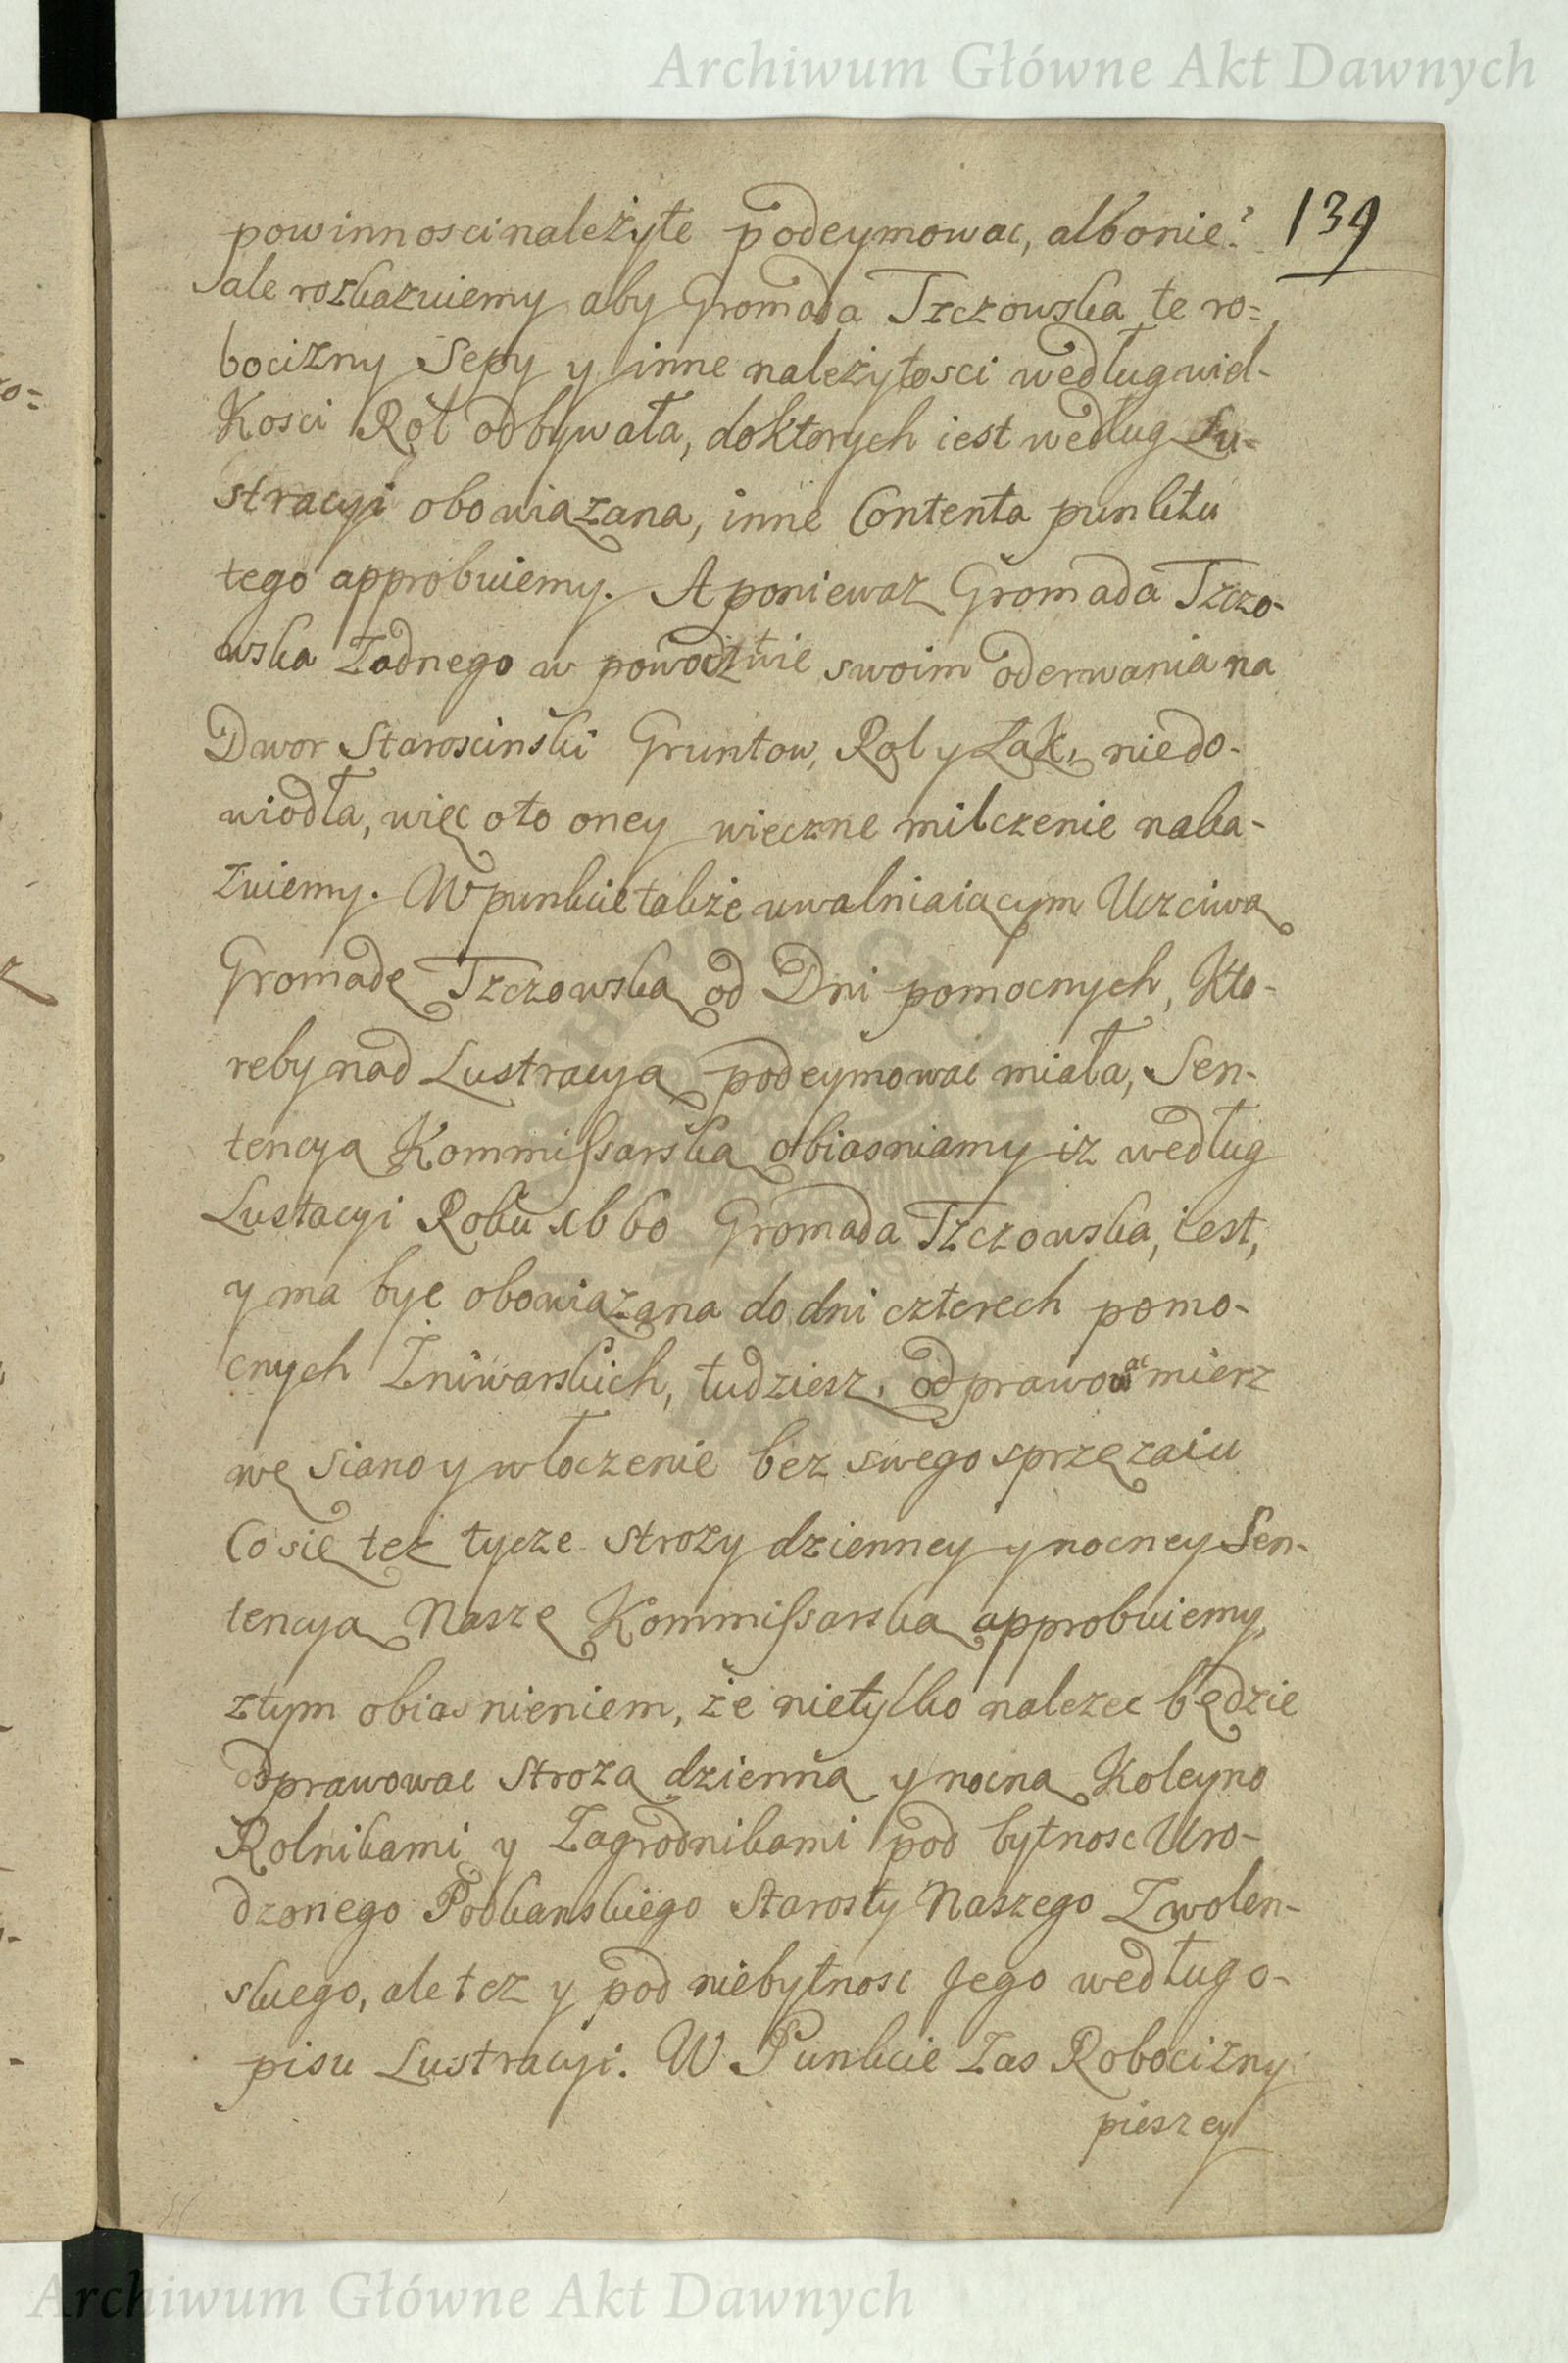 Archiwum Główne Akt Dawnych
139
powinnosci należyte podeymowac, albo nie?
ale rozkazuiemy aby Gromada Tzczowska te ro=
bocizny Sepy y inne należytosci według wiel-
Kosci Rol odbywała, do ktorych iest według Lu-
stracyi obowiązana, inne Contenta punktu
tego approbuiemy. A poniewaz Gromada Tzczo-
wska Zadnego w powodztwie swoim oderwania na
Dwor Starosciński Gruntow, Rol y Łąk, niedo-
wiodła, więc oto oney wieczne milczenie naka-
zuiemy. W punkcie także uwalniaiącym Uczciwą
Gromadę Tzczowską od Dni pomocnych, Kto-
reby nad Lustracyą podeymowac miała, Sen-
tencyą Kommissarską obiasniamy iz według
Lustacyi Roku 1660 Gromada Tzczowska, iest,
y ma byc obowiązana do dni czterech pomo-
cnych Zniwarskich, tudziesz, odprawowac mierz
wę siano y włoczenie bez swego sprzęzaiu
Co się tez tycze strozy dzienney y nocney Sen-
tencyą Naszę Kommissarską approbuiemy,
z tym obiasnieniem, że nie tylko nalezec będzie
odprawowac strozą dzienną y nocną Koleyno
Rolnikami y Zagrodnikami pod bytnosc Uro-
dzonego Podkanskiego Starosty Naszego Zwolen-
skiego, ale tez y pod niebytnosc Jego według o-
pisu Lustracyi. W Punkcie Zas Robocizny
pieszey
Archiwum Główne Akt Dawnych